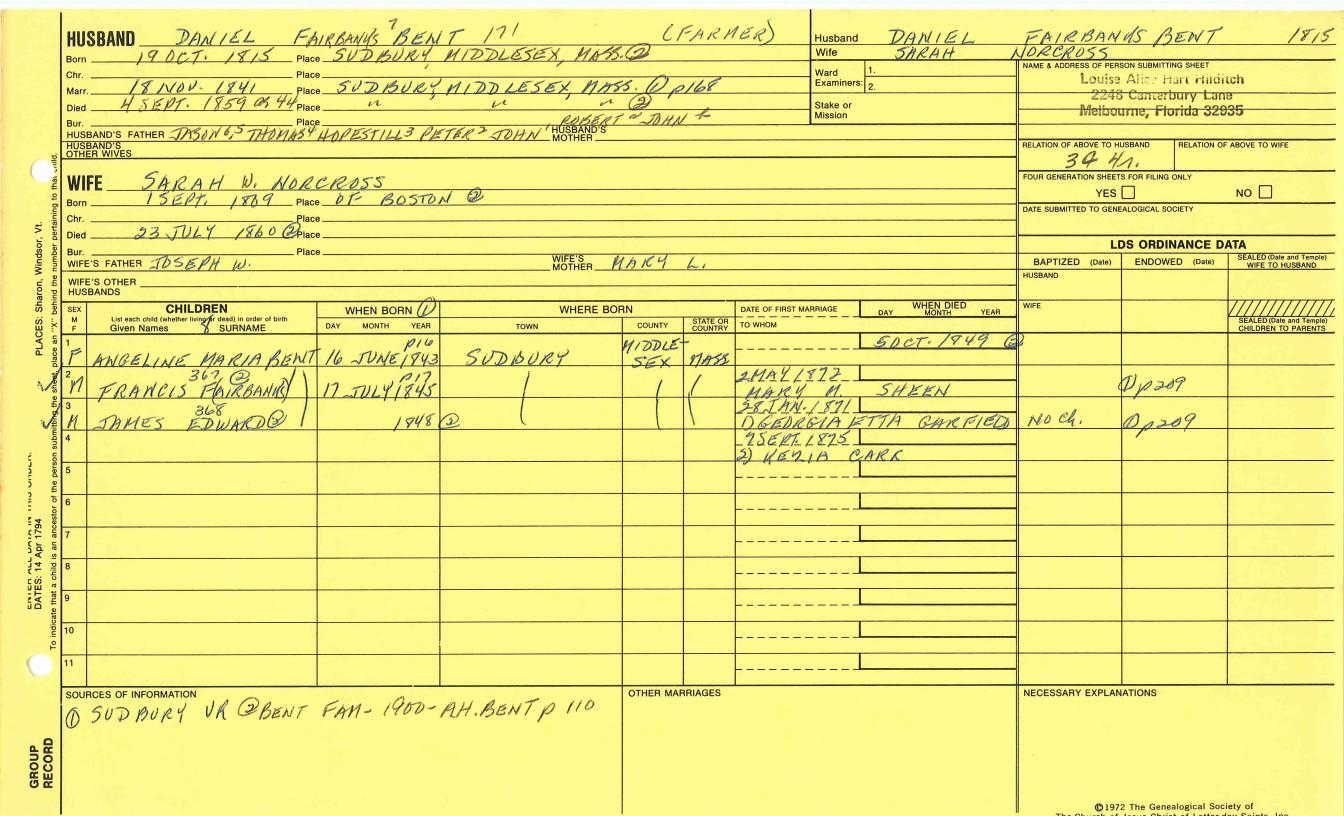 HUSBAND DANIEL FAIRBANKS 7 BENT 171 (FARMER)
Born 19 OCT. 1815 Place SUDBURY, MIDDLESEX, MASS. ②
Chr. Place
Marr. 18 NOV. 1841 Place SUDBURY, MIDDLESEX, MASS. ① p168
Died 4 SEPT. 1859 or 44 Place " " " ②
Bur. Place ROBERT JOHN
HUSBAND'S FATHER JASON 6,5 THOMAS 4 HOPESTILL 3 PETER 2 JOHN 1 HUSBAND'S MOTHER
HUSBAND'S OTHER WIVES
Husband DANIEL FAIRBANKS BENT 1815
Wife SARAH NORCROSS
Ward Examiners: 1.
2.
Stake or Mission
NAME & ADDRESS OF PERSON SUBMITTING SHEET
Louise Alice Hart Hilditch
2248 Canterbury Lane
Melbourne, Florida 32935
RELATION OF ABOVE TO HUSBAND RELATION OF ABOVE TO WIFE
FOUR GENERATION SHEETS FOR FILING ONLY
YES NO
DATE SUBMITTED TO GENEALOGICAL SOCIETY
WIFE SARAH W. NORCROSS
Born 1 SEPT. 1809 Place OF BOSTON ②
Chr. Place
Died 23 JULY 1860 ② Place
Bur. Place
WIFE'S FATHER JOSEPH W. WIFE'S MOTHER MARY L.
WIFE'S OTHER HUSBANDS
LDS ORDINANCE DATA
BAPTIZED (Date) ENDOWED (Date) SEALED (Date and Temple) WIFE TO HUSBAND
HUSBAND
WIFE
SEALED (Date and Temple) CHILDREN TO PARENTS
SEX M F CHILDREN WHEN BORN ① WHERE BORN DATE OF FIRST MARRIAGE WHEN DIED
List each child (whether living or dead) in order of birth
Given Names 8 SURNAME DAY MONTH YEAR TOWN COUNTY STATE OR COUNTRY TO WHOM DAY MONTH YEAR
1 F ANGELINE MARIA BENT 16 JUNE 1843 p16 SUDBURY MIDDLESEX MASS 5 OCT. 1849 ②
2 M FRANCIS FAIRBANKS 367 ② 17 JULY 1845 p17 2 MAY 1872 MARY M. SHEEN ① p209
3 M JAMES EDWARD 368 ② 1848 ② 28 JAN. 1871 1) GEORGIA ETTA GARFIELD NO Ch. ① p209
4 7 SEPT. 1875
2) KEZIA CARR
5
6
7
8
9
10
11
SOURCES OF INFORMATION
① SUDBURY VR ② BENT FAM- 1900- A.H. BENT p 110
OTHER MARRIAGES
NECESSARY EXPLANATIONS
©1972 The Genealogical Society of
The Church of Jesus Christ of Latter-day Saints, Inc.
PLACES: Sharon, Windsor, Vt.
ENTER ALL DATA IN THIS ORDER:
DATES: 14 Apr 1794
To indicate that a child is an ancestor of the person submitting the sheet, place an "X" behind the number pertaining to that child.
GROUP RECORD